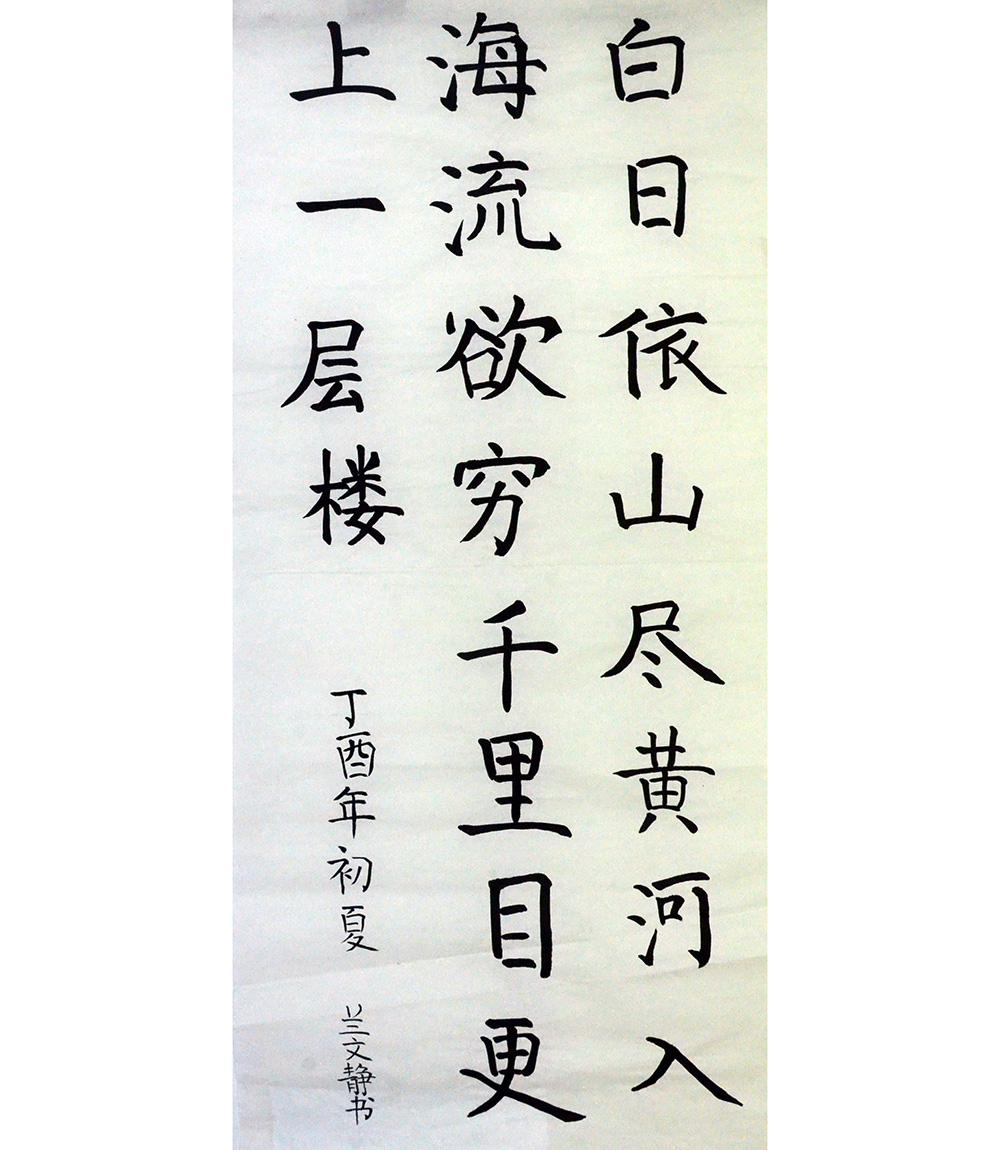 白日依山尽黄河入
海流欲穷千里目更
上一层楼
丁酉年初夏 兰文静书